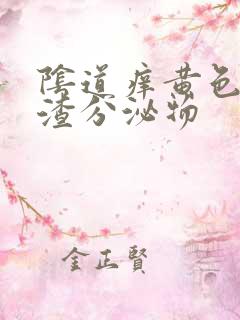 陰道痒黄色
渣分泌物
金正賢